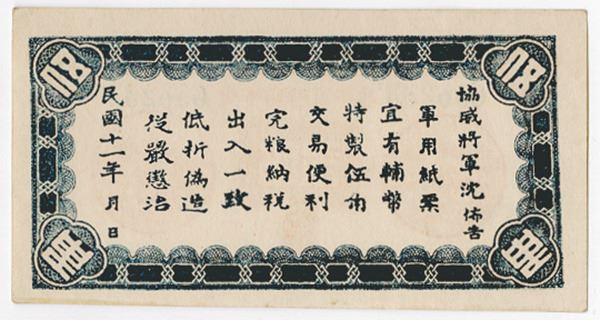 協威將軍沈 佈告
軍用紙票
宜有輔幣
特製伍角
交易便利
完粮納税
出入一致
低折偽造
從嚴懲治
民國十一年 月 日